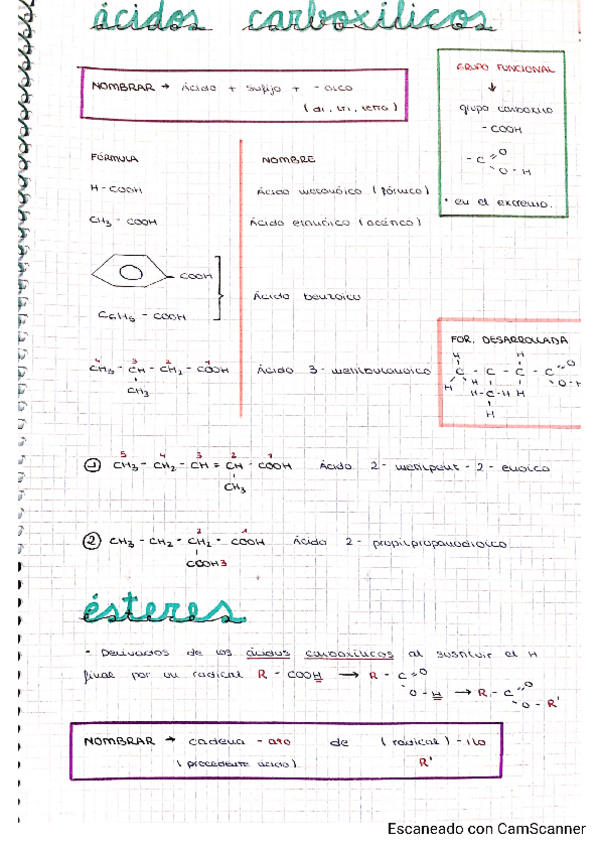 ácidos carboxílicos
NOMBRAR → ácido + sufijo + -oico
(di, tri, tetra)
GRUPO FUNCIONAL
↓
grupo carboxilo
- COOH
- C =O
O - H
• en el extremo.
FÓRMULA NOMBRE
H - COOH Ácido metanóico (fórmico)
CH3 - COOH Ácido etanóico (acético)
- COOH
Ácido benzoico
C6H5 - COOH
4 3 2 1
CH3 - CH - CH2 - COOH Ácido 3-metilbutanoico
CH3
FOR. DESARROLLADA
H H
C - C - C - C =O
H H O - H
H - C - H H
H
5 4 3 2 1
① CH3 - CH2 - CH = CH - COOH Ácido 2-metilpent-2-enoico
CH3
2 1
② CH3 - CH2 - CH2 - COOH Ácido 2-propilpropanodioico
COOH3
ésteres
- Derivados de los ácidos carboxílicos al sustituir el H
final por un radical R - COOH → R - C =O
O - H → R - C =O
O - R'
NOMBRAR → cadena - ato de (radical) - ilo
(procedente ácido) R'
Escaneado con CamScanner